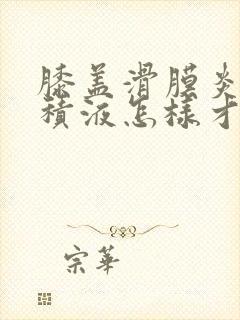 膝盖滑膜炎
積液怎樣才
宗華